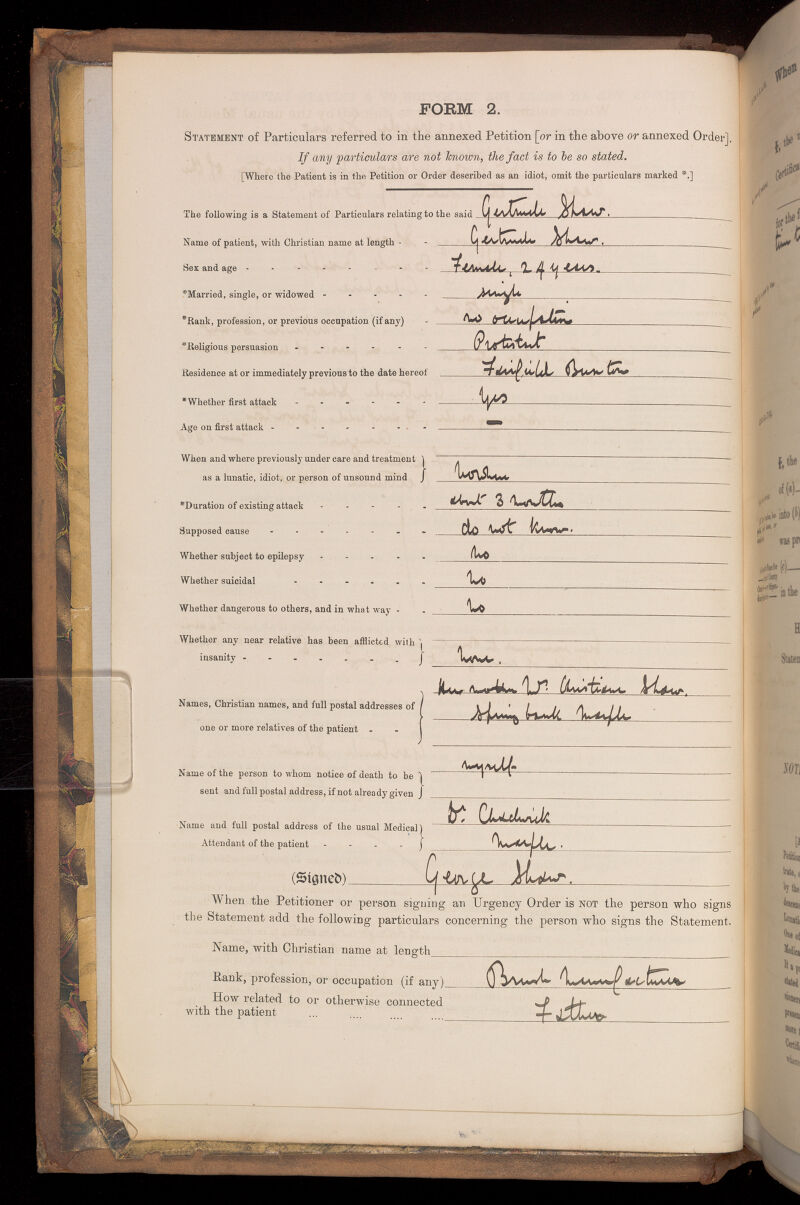 FORM 2.
STATEMENT of Particulars referred to in the annexed Petition [or in the above or annexed Order].
If any particulars are not known, the fact is to be so stated.
[Where the Patient is in the Petition or Order described as an idiot, omit the particulars marked *.]
The following is a Statement of Particulars relating to the said Gertrude Shaw.
Name of patient, with Christian name at length - - Gertrude Shaw.
Sex and age - - - - - - - Female, 24 years.
*Married, single, or widowed - - - - - single
*Rank, profession, or previous occupation (if any) - no occupation
*Religious persuasion - - - - - - Protestant
Residence at or immediately previous to the date hereof Fairfield Buxton
*Whether first attack - - - - - - Yes
Age on first attack - - - - - - - —
When and where previously under care and treatment
as a lunatic, idiot, or person of unsound mind
*Duration of existing attack - - - - - about 3 months
Supposed cause - - - - - - - do not know.
Whether subject to epilepsy - - - - - No
Whether suicidal - - - - - - No
Whether dangerous to others, and in what way - - No
Whether any near relative has been afflicted with
insanity - - - - - - - None.
Her mother Christiana Shaw.
Names, Christian names, and full postal addresses of
Spring bank Marple
one or more relatives of the patient - -
Name of the person to whom notice of death to be myself
sent and full postal address, if not already given
Name and full postal address of the usual Medical Dr. Chadwick
Attendant of the patient - - - - Marple.
(Signed) George Shaw.
When the Petitioner or person signing an Urgency Order is NOT the person who signs
the Statement add the following particulars concerning the person who signs the Statement.
Name, with Christian name at length
Rank, profession, or occupation (if any) Brush Manufacturer
How related to or otherwise connected
with the patient ... .... .... .... Father